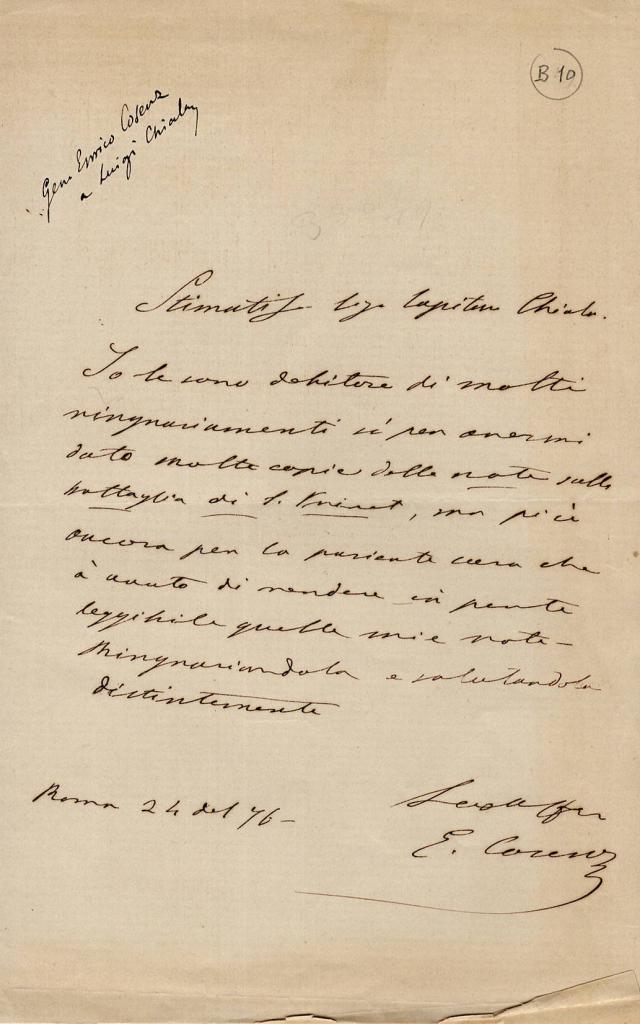 B 10
Gen. Enrico Cosenz
a Luigi Chiala
Stimatiss. Sigr Capitano Chiala.
Io le sono debitore di molti
ringraziamenti sì per avermi
dato molte copie delle note sulla
battaglia di S. Privat, ma più
ancora per la paziente cura che
à avuto di rendere in parte
leggibile quelle mie note –
Ringraziandola e salutandola
distintamente
Roma 24 del 76 –
E. Cosenz